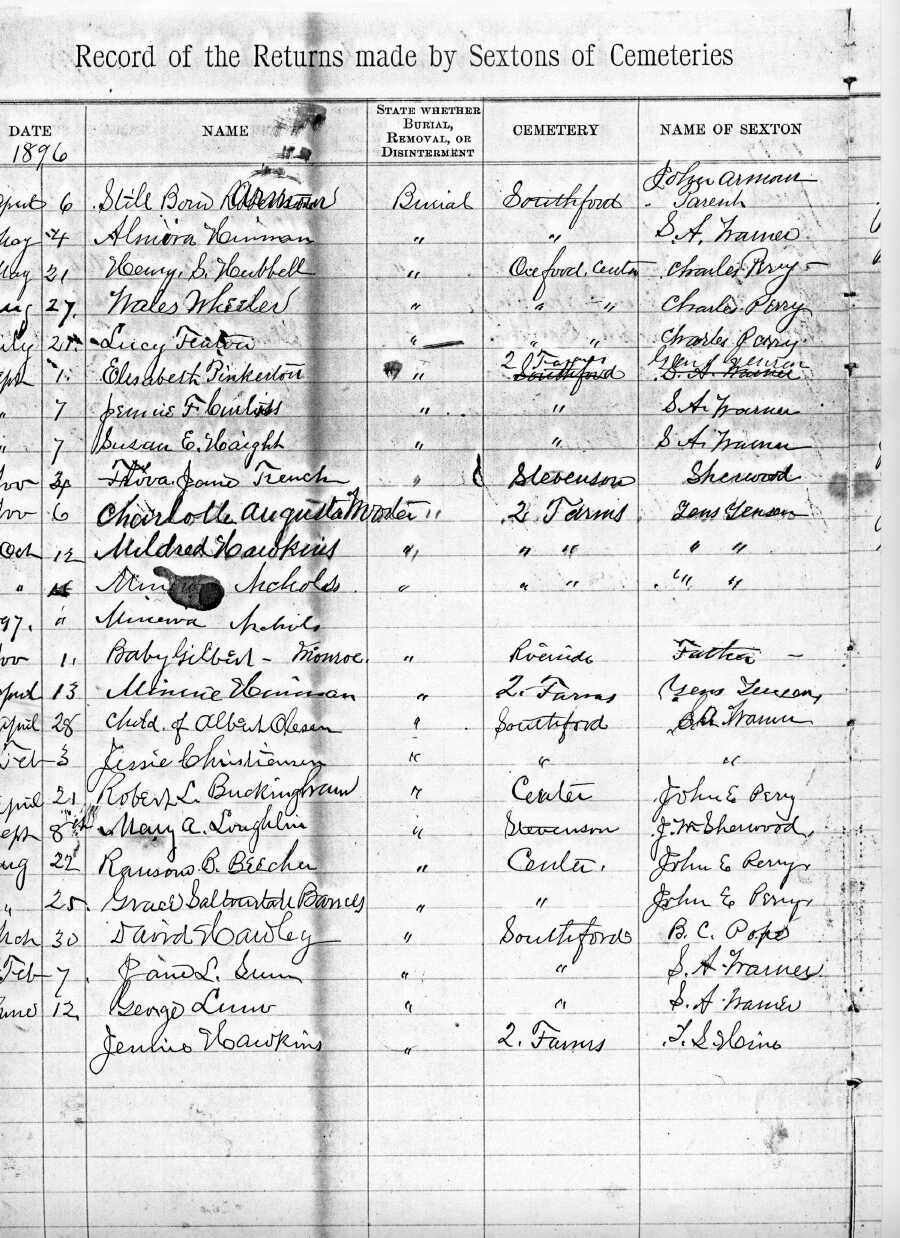 Record of the Returns made by Sextons of Cemeteries
DATE NAME STATE WHETHER BURIAL, REMOVAL, OR DISINTERMENT CEMETERY NAME OF SEXTON
1896
John Arman
April 6 Still Born Burial Southford Parent
May 4 Almira Hinman " " S. A. Warner
May 21 Henry S. Hubbell " Oxford Center Charles Perry
27 Wales Wheeler " " " Charles Perry
Lucy " " " Charles Perry
2 Farms
Sept 1 Elisabeth Pinkerton " Southford S. A. Warner
" 7 Jennie F. Curtiss " " S. A. Warner
" 7 Susan E. Haight " " S. A. Warner
Nov Jane French " Stevenson Sherwood
Nov 6 Charlotte Augusta Wooster " 2 Farms Jens Jensen
Oct 12 Mildred Hawkins " " " " "
" Nichols " " " " "
97. " Minerva Nichols
Nov 11 Baby Gilbert - Monroe. " Riverside Father -
April 13 Minnie Hinman " 2. Farms Jens Jensen
April 28 Child of Albert Olesen " Southford S A Warner
Feb 3 Jessie Christiansen " " "
April 21 Robert L. Buckingham " Center John E Perry
Sept 8 Mary A. Loughlin " Stevenson J. W. Sherwood
Aug 22 Ransom B. Beecher " Center. John E Perry
" 25. Grace Saltonstall Barnes " " John E Perry
Mch 30 David Hawley " Southford B. C. Pope
Feb 7. Jane L. Gunn " " S. A. Warner
June 12. George Lum " " S. A Warner
Jennie Hawkins " 2. Farms T. S Hine